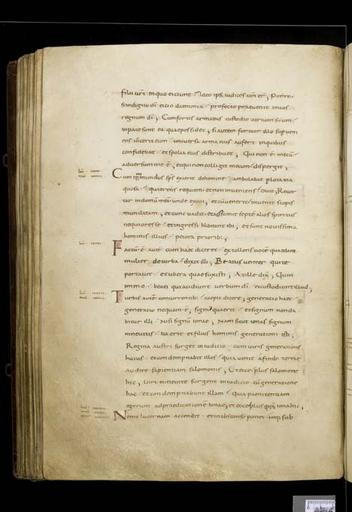 filii uri inquo eiciunt· Ideo ipsi iudices uri er; Porro si
indigito di eicio daemonia· profecto peruenit inuos
regnum di; Cum fortis armatus custodit atrium suum
inpace sunt ea quae possidet; si autem fortior illo superueni
ens uicerit eum· uniuersa arma eius aufert inquibus
confidebat· et spolia eius distribuit; Qui non ē mecū
aduersum me ē; et qui non colligit mecum dispergit;
Cum inmundus sps exierit dehomine· ambulat per loca ina
quosa· quaerens requiem et non inueniens dicit Reuer
tar indomū meā unde exiui; et cum uenerit inuenit scopis
mundatam; et tunc uadit et assumit septem alios spiritus
nequiores se· et ingressi habitant ibi; et sunt nouissima
hominis illius· peiora prioribus;
Factum ē aut cum haec diceret· extollens uocem quaedam
mulier deturba dixit illi; Beatus uenter quite
portauit· et ubera quae suxisti; At ille dix; Quin
immo· beati qui audiunt uerbum di· et custodiunt illud;
Turbis autē concurrentib; coepit dicere; generatio haec
generatio nequam ē; signū quaerit· et signum nonda
bitur illi· nisi signū ionae; Nam sicut ionas signum
niniuitis· ita erit et filius hominis generationi isti;
Regina austri surget iniudicio· cum uiris generationis
huius· et condempnabit illos· quia uenit afinib; terrae
audire sapientiam salomonis; et ecce plus salomone
hic; uiri niniuitae surgent iniudicio cū generatione
hac· et condempnabunt illam· Quia paenitentiam
egerunt adpraedicationē ionae; et ecce plus quā iona hic;
Nemo lucernam accendit· et inabscondito ponit· neq; sub